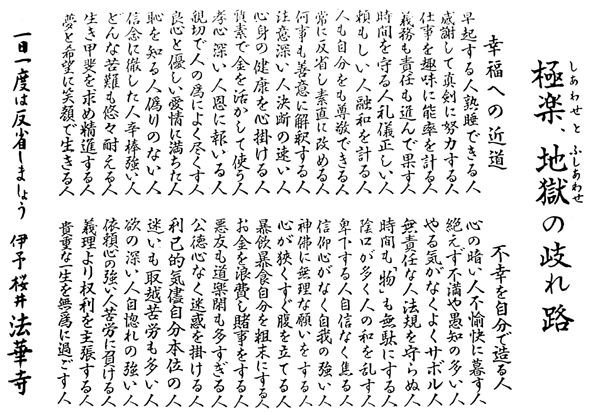 極楽、地獄の岐れ路
しあわせと ふしあわせ
幸福への近道
早起する人熟睡できる人
感謝して真剣に努力する人
仕事を趣味に能率を計る人
義務も責任も進んで果す人
時間を守る人礼儀正しい人
頼もしい人融和を計る人
人も自分をも尊敬できる人
常に反省し素直に改める人
何事も善意に解釈する人
注意深い人決断の速い人
心身の健康を心掛ける人
質素で金を活かして使う人
孝心深い人恩に報いる人
親切で人の為によく尽くす人
良心と優しい愛情に満ちた人
恥を知る人偽りのない人
信念に徹した人辛棒強い人
どんな苦難も悠々耐える人
生き甲斐を求め精進する人
夢と希望に笑顔で生きる人
不幸を自分で造る人
心の暗い人不愉快に暮す人
絶えず不満や愚知の多い人
やる気がなくよくサボル人
無責任な人法規を守らぬ人
時間も「物」も無駄にする人
陰口が多く人の和を乱す人
卑下する人自信なく焦る人
信仰心がなく自我の強い人
神佛に無理な願いをする人
心が狭くすぐ腹を立てる人
暴飲暴食自分を粗末にする人
お金を浪費し賭事をする人
悪友も道楽間も多すぎる人
公徳心なく迷惑を掛ける人
利己的気儘自分本位の人
迷いも取越苦労も多い人
欲の深い人自惚れの強い人
依頼心の強い人苦労に負ける人
義理より权利を主張する人
貴重な一生を無為に過ごす人
一日一度は反省しましょう
伊予桜井 法華寺